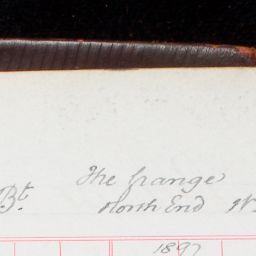 The Grange
Bt. North End W
1897